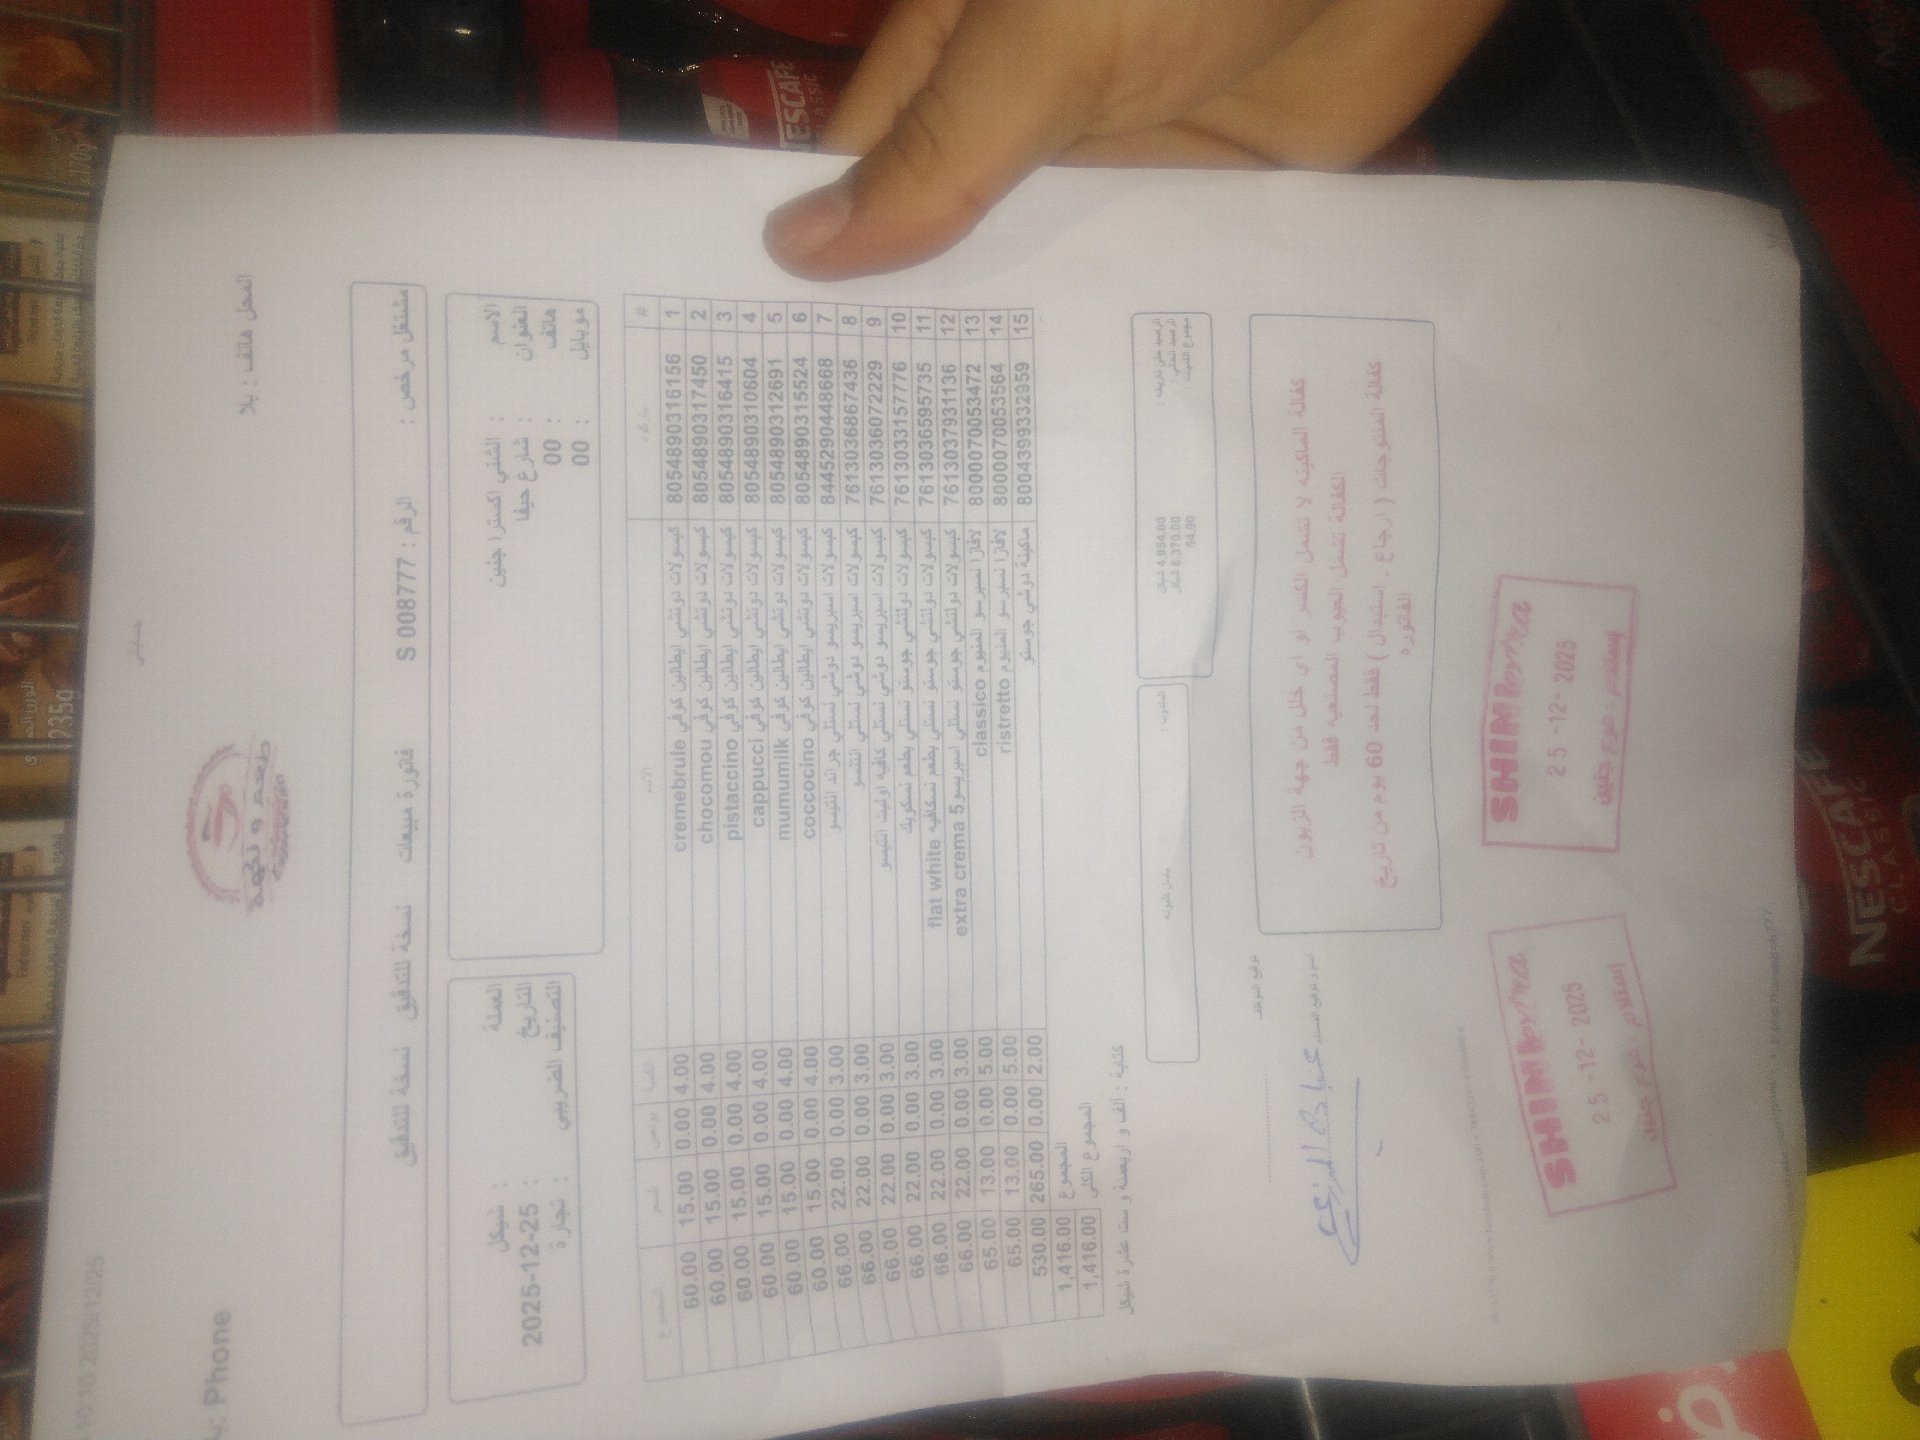 10:10 2025/12/25
حساباتي
طعم و نكهة
المحل هاتف : بلا
Phone
مشتغل مرخص :
الرقم : S 008777
فاتورة مبيعات
نسخة للتدقيق نسخة للتدقيق
الاسم : الشني اكسترا جنين
العنوان : شارع حيفا
هاتف : 00
موبايل : 00
العملة : شيكل
التاريخ : 2025-12-25
التصنيف الضريبي : تجارة
# باركود الاسم الكمية بونص السعر المجموع
1 8054890316156 كبسولات دوتشي ايطالين كوفي cremebrule 4.00 0.00 15.00 60.00
2 8054890317450 كبسولات دوتشي ايطالين كوفي chocomou 4.00 0.00 15.00 60.00
3 8054890316415 كبسولات دوتشي ايطالين كوفي pistaccino 4.00 0.00 15.00 60.00
4 8054890310604 كبسولات دوتشي ايطالين كوفي cappucci 4.00 0.00 15.00 60.00
5 8054890312691 كبسولات دوتشي ايطالين كوفي mumumilk 4.00 0.00 15.00 60.00
6 8054890315524 كبسولات دوتشي ايطالين كوفي coccocino 4.00 0.00 15.00 60.00
7 8445290448668 كبسولات اسبريسو دوتشي نستلي جراند انتنسو 3.00 0.00 22.00 66.00
8 7613036867436 كبسولات اسبريسو دوتشي نستلي انتنسو 3.00 0.00 22.00 66.00
9 7613036072229 كبسولات اسبريسو دوتشي نستلي كافيه اوليت انتنسو 3.00 0.00 22.00 66.00
10 7613033157776 كبسولات دولتشي جوستو نستلي بطعم نسكويك 3.00 0.00 22.00 66.00
11 7613036595735 كبسولات دولتشي جوستو نستلي بطعم نسكافيه flat white 3.00 0.00 22.00 66.00
12 7613037931136 كبسولات دولتشي جوستو نستلي اسبريسو extra crema 5 3.00 0.00 22.00 66.00
13 8000070053472 لافازا نسبرسو المنيوم classico 5.00 0.00 13.00 65.00
14 8000070053564 لافازا نسبرسو المنيوم ristretto 5.00 0.00 13.00 65.00
15 8004399332959 ماكينة دوتشي جوستو 2.00 0.00 265.00 530.00
المجموع 1,416.00
المجموع الكلي 1,416.00
كتابة : الف و اربعمئة و ست عشرة شيكل
4,954.00 شيكل
6,370.00 شيكل
مجموع الكميات : 54.00
كفالة الماكينه لا تشمل الكسر او اي خلل من جهة الزبون
الكفالة تشمل العيوب المصنعيه فقط
كفالة المنتوجات ( ارجاع . استبدال ) فقط لحد 60 يوم من تاريخ
الفاتوره
SHINI extra
25-12-2025
استلام : فرع جنين
SHINI extra
25-12-2025
استلام : فرع جنين
NESCAFE
CLASSIC
NESCAFE
CLASSIC
235g
170g